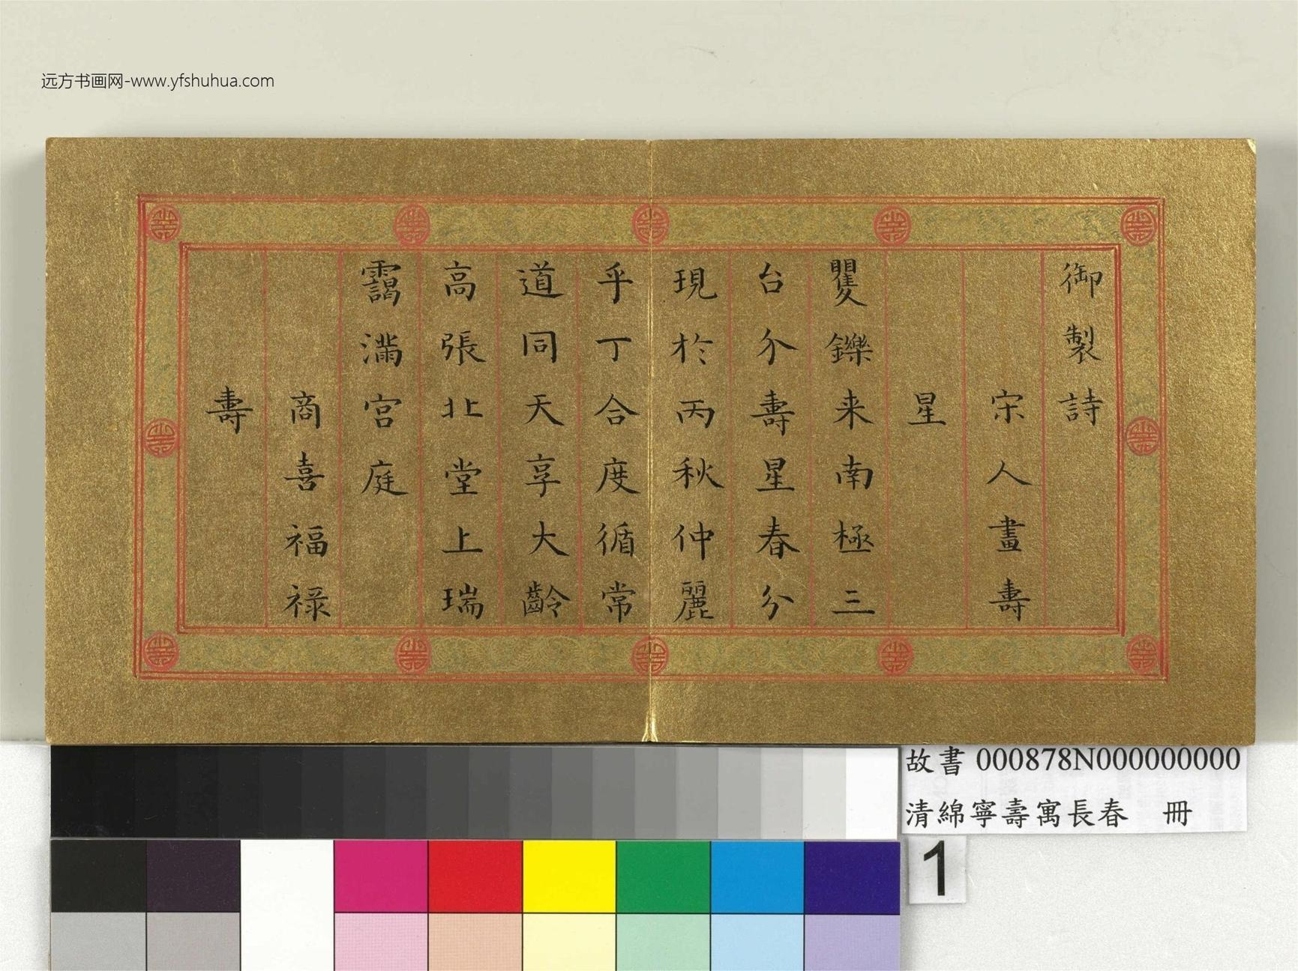 远方书画网-www.yfshuhua.com
御製詩
宋人畫壽
星
矍鑠来南極三
台介壽星春分
現於丙秋仲麗
乎丁合度循常
道同天享大齡
高張北堂上瑞
靄滿宮庭
商喜福禄
壽
故書 000878N000000000
清綿寧壽寓長春 冊
1